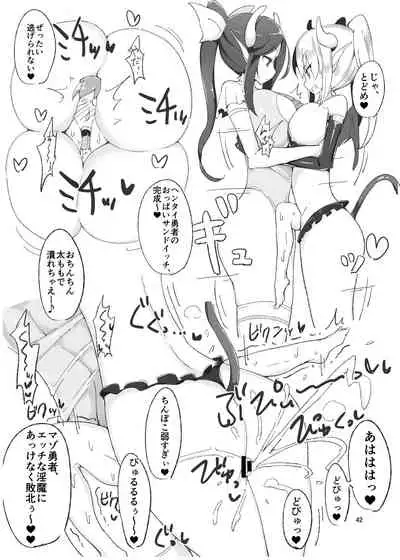 じゃ、
とどめ♥
ぜったい
逃げられない♥
ミチッ
ミチッ
ミチッ
ヘンタイ勇者の
おっぱいサンドイッチ、
完成～♥
ギュウ
おちんちん
太ももで
潰れちゃえ～♪
ぐっ…
ぐぐぐ…
ビクンッ
ぶぴゅーーっ
びゅくっ
あはははっ♥
ちんぽこ弱すぎぃ♥
びゅるるるぅ♥
びゅっ
どぴゅっ
どぴゅっ
マゾ勇者、
エッチな淫魔に
あっけなく敗北
ぅ～♥
42